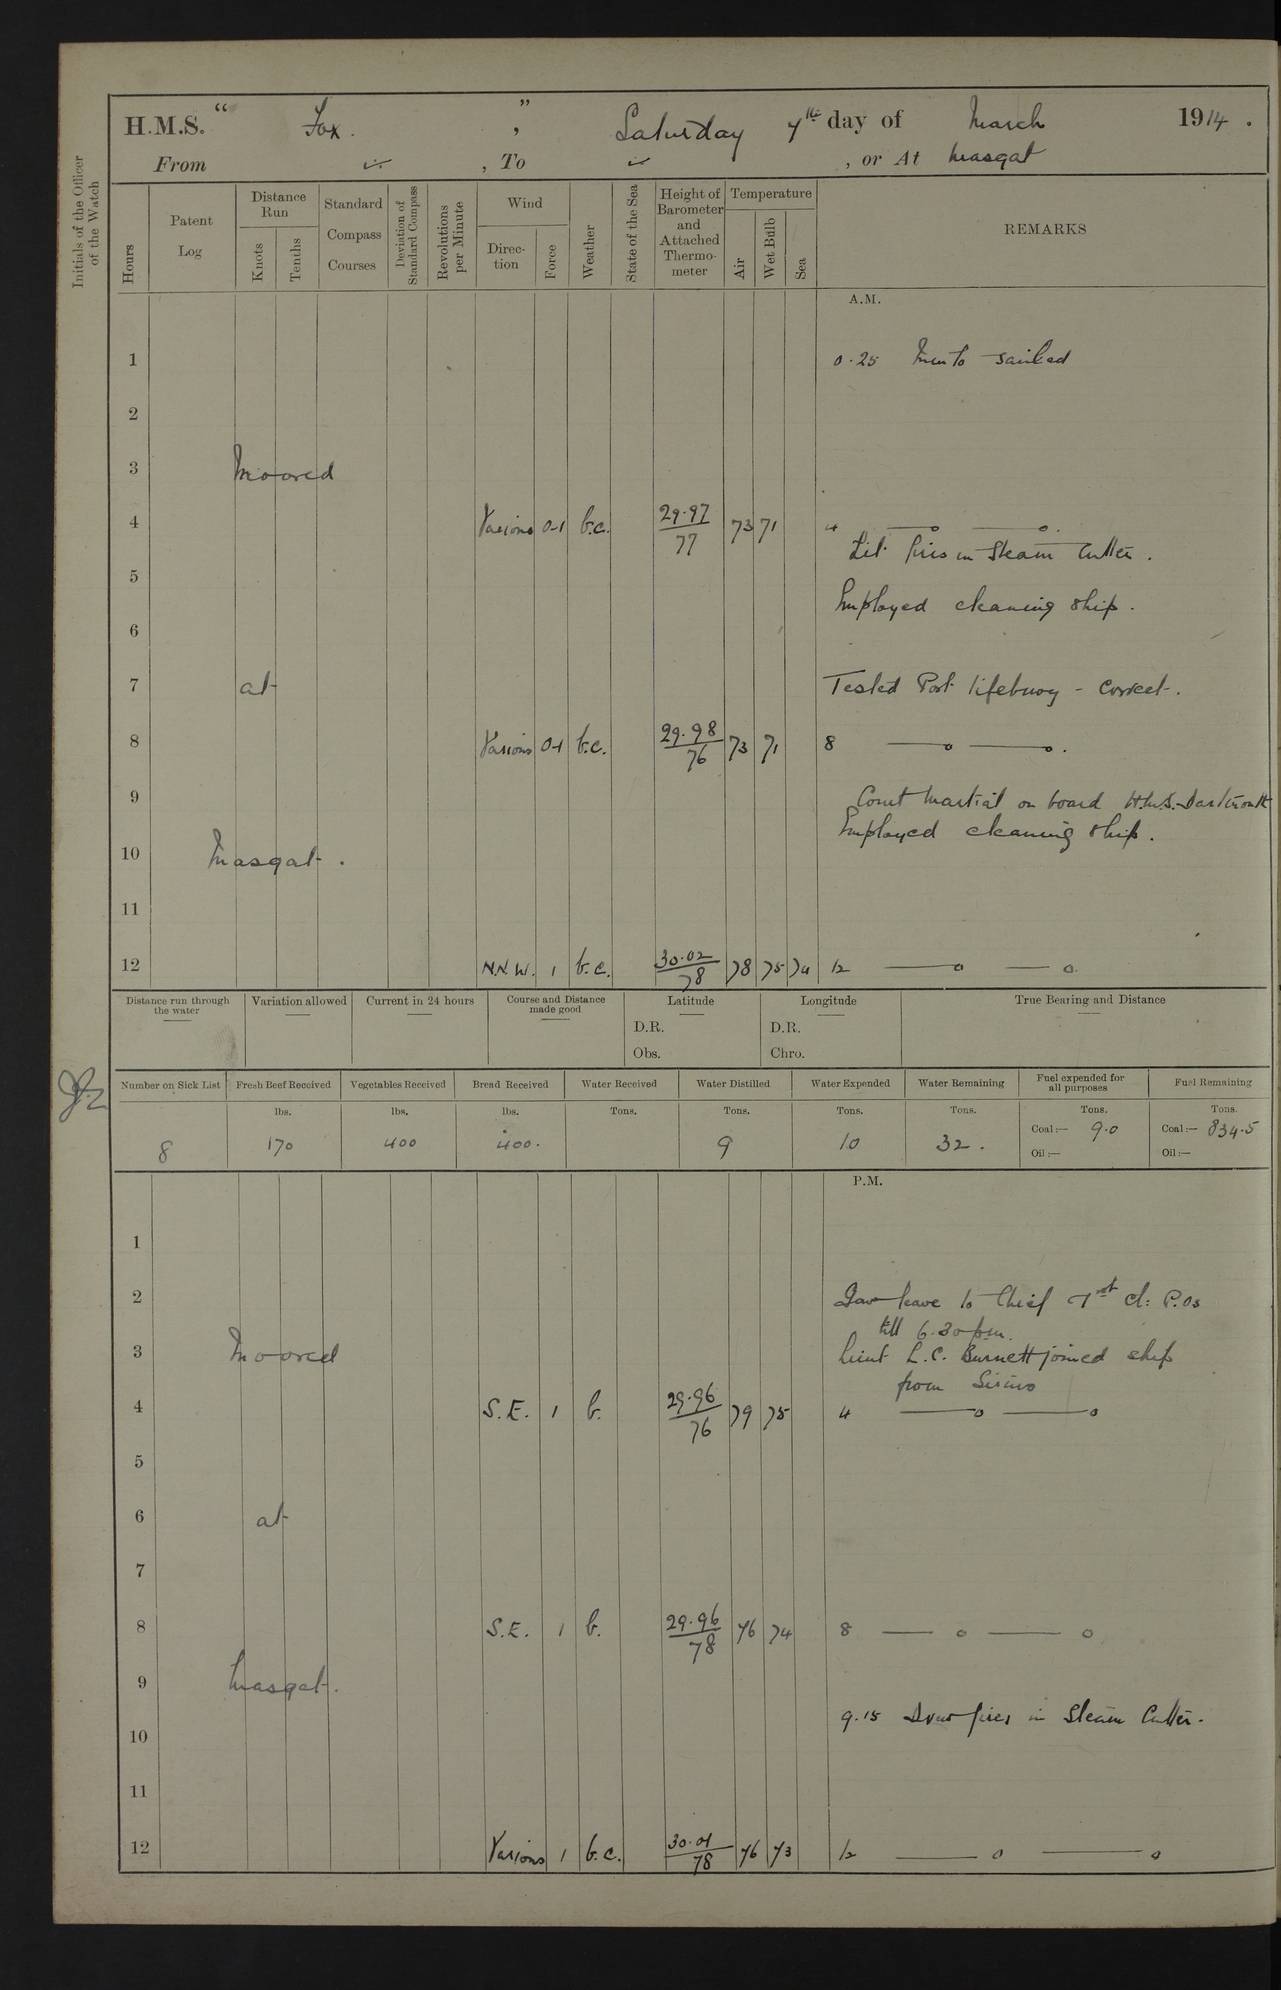 H.M.S. " Fox. " , Saturday 7th day of March 1914 .
From , To , or At Masqat
Initials of the Officer of the Watch
Hours
Patent Log
Distance Run
Knots
Tenths
Standard Compass Courses
Deviation of Standard Compass
Revolutions per Minute
Wind
Direction
Force
Weather
State of the Sea
Height of Barometer and Attached Thermometer
Temperature
Air
Wet Bulb
Sea
REMARKS
A.M.
1 0.25 sailed
2
3 Moored
4 Various 0-1 b.c. 29.97/77 73 71 4
Lit fires in Steam Cutter.
5
Employed cleaning ship.
6
7 at Tested Port lifebuoy - correct.
8 Various 0-1 b.c. 29.98/76 73 71 8
9 Court Martial on board H.M.S. Dartmouth
Employed cleaning ship.
10 Masqat.
11
12 N.N.W. 1 b.c. 30.02/78 78 75 74 12
Distance run through the water
Variation allowed
Current in 24 hours
Course and Distance made good
Latitude
D.R.
Obs.
Longitude
D.R.
Chro.
True Bearing and Distance
Number on Sick List Fresh Beef Received Vegetables Received Bread Received Water Received Water Distilled Water Expended Water Remaining Fuel expended for all purposes Fuel Remaining
lbs. lbs. lbs. Tons. Tons. Tons. Tons. Tons. Tons.
8 170 400 400. 9 10 32. Coal:— 9.0 Coal:— 834.5
Oil:— Oil:—
P.M.
1
2 Gave leave to Chief & 1st Cl: P.Os
till 6.30 p.m.
3 Moored Lieut L.C. Burnett joined ship
from Sirius
4 S.E. 1 b. 29.96/76 79 75 4
5
6 at
7
8 S.E. 1 b. 29.96/78 76 74 8
9 Masqat.
9.15 Drew fires in Steam Cutter.
10
11
12 Various 1 b.c. 30.01/78 76 73 12